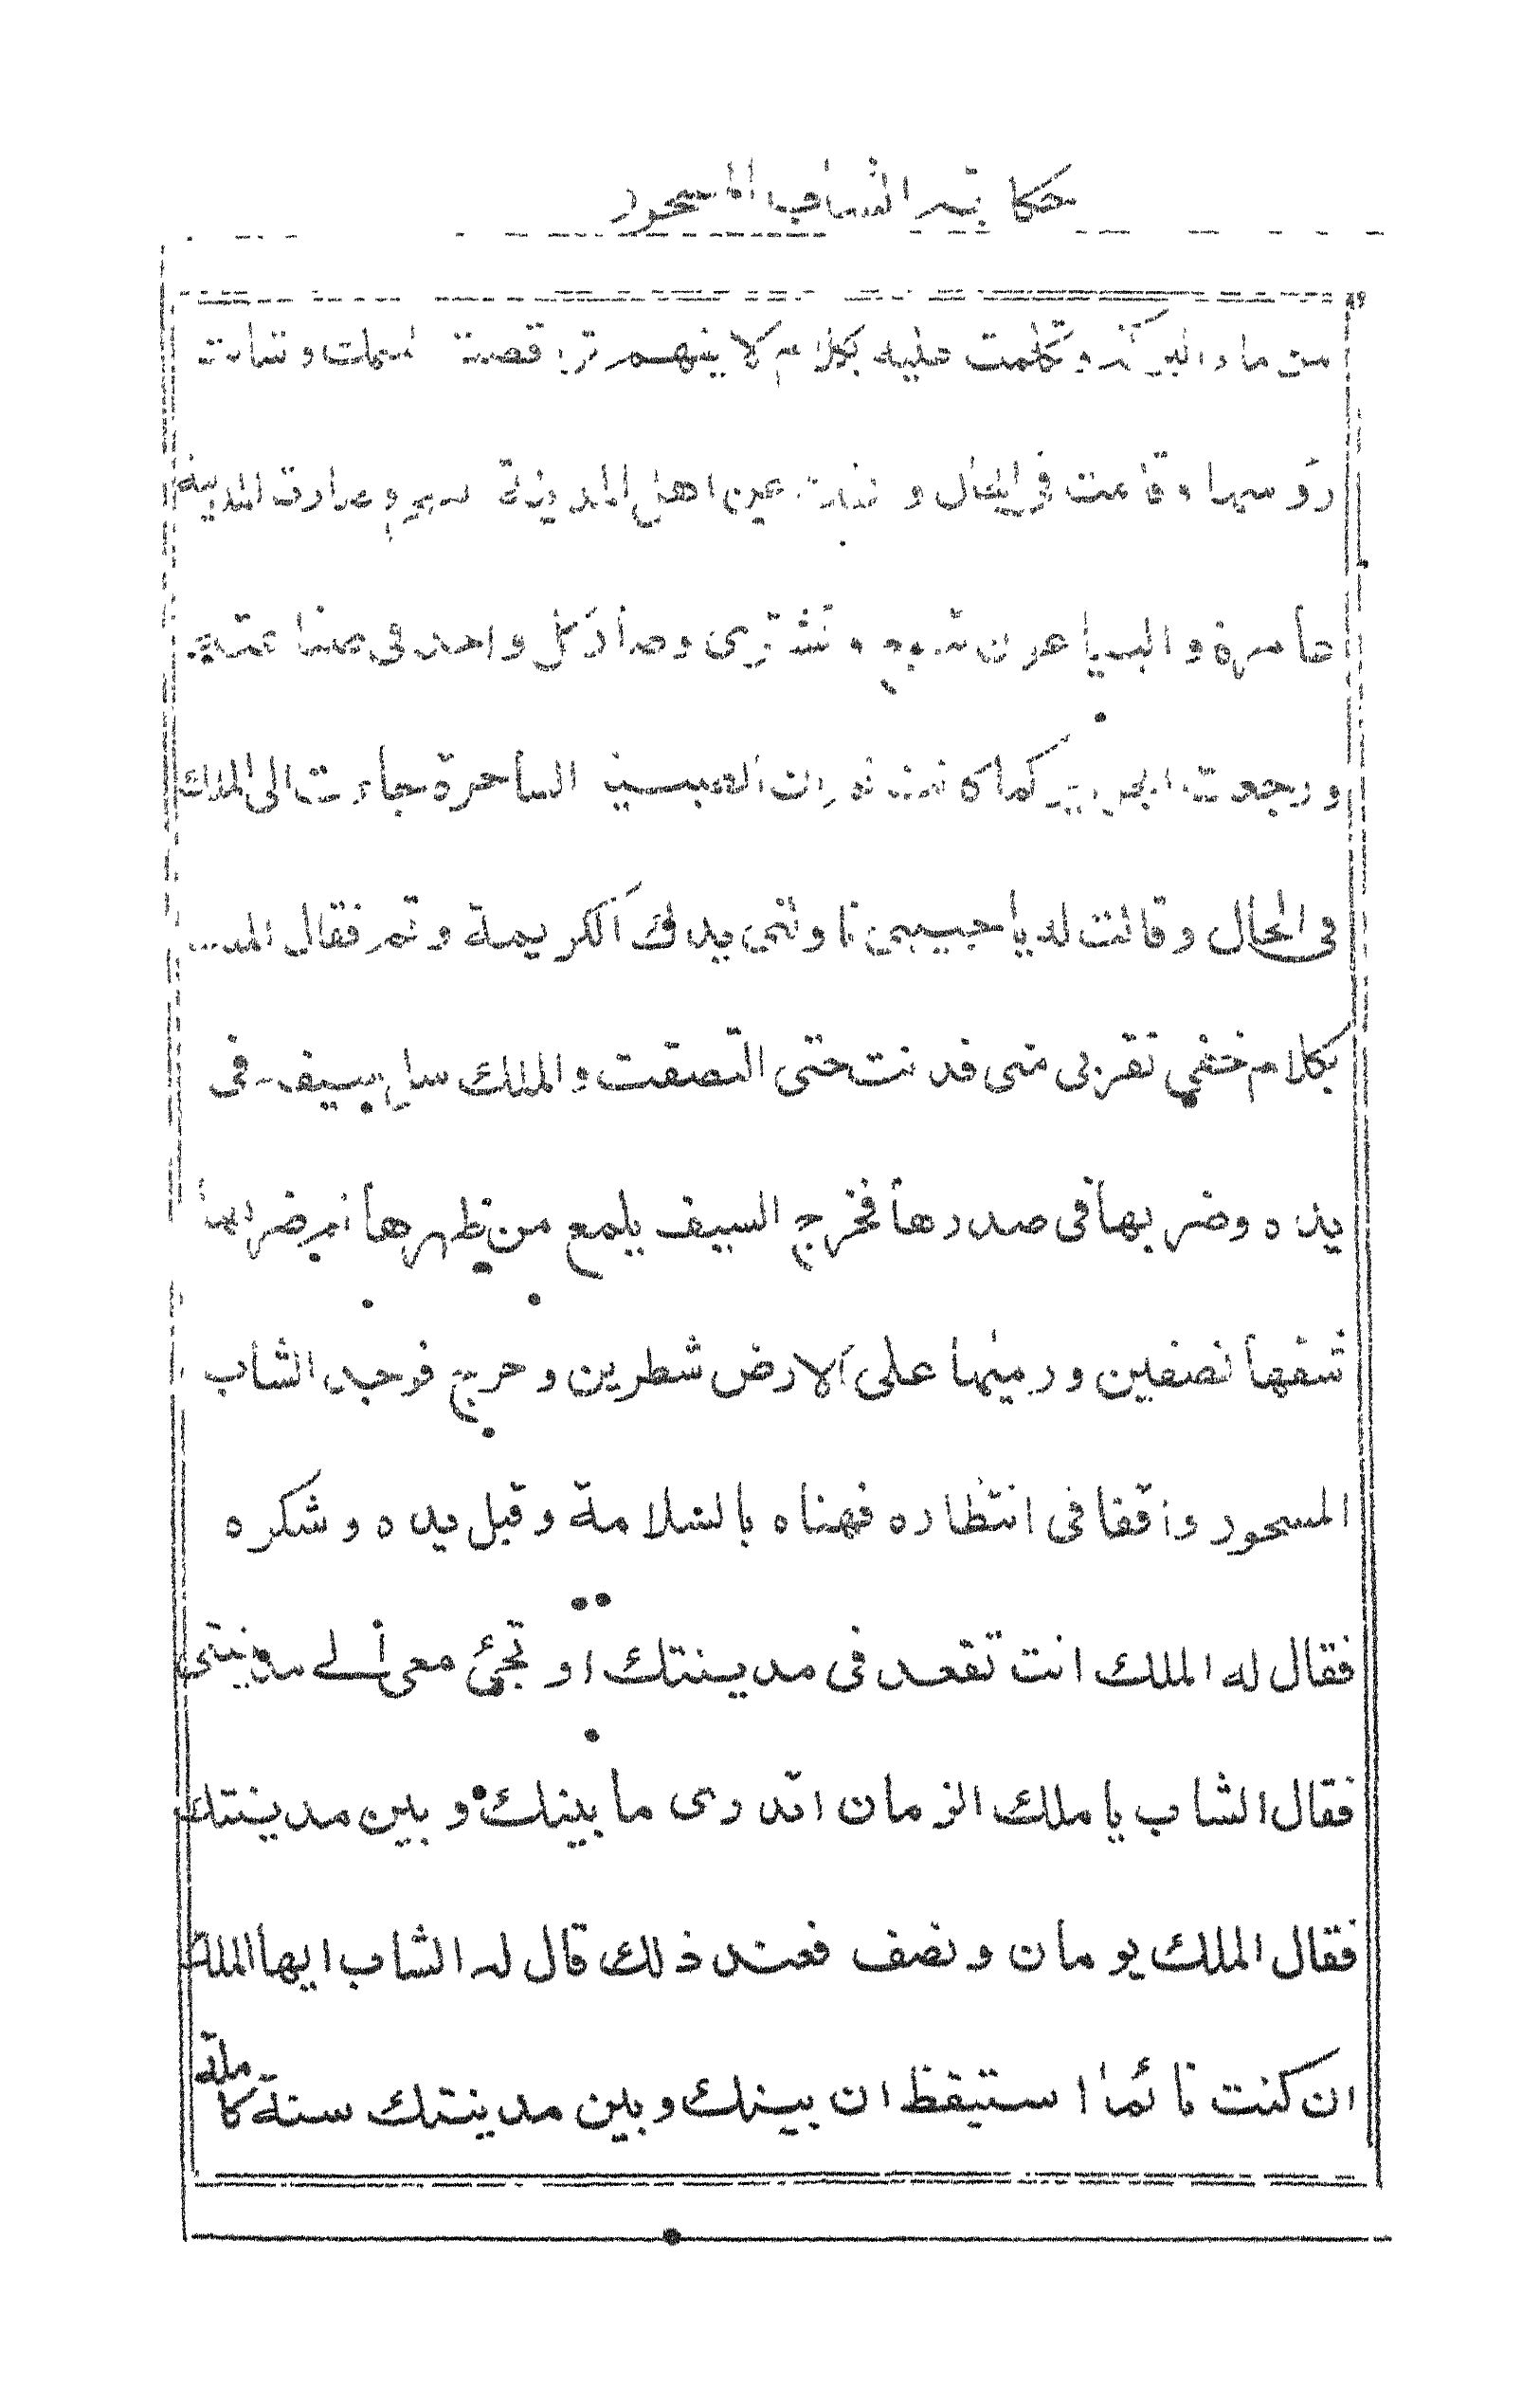 حكاية الشاب المسحور
من ماء البركة وتكلمت عليه بكلام لا يفهم
رؤسها وقامت في الحال و عن اهل المدينة وصارت المدينة
عامرة و البياعون تبيع و تشتري وصار كل واحد في
ورجعت كما كانت ان الصبية الساحرة جاءت الى الملك
في الحال وقالت له يا حبيبي ناولني يدك الكريمة وقم فقال
بكلام خفي تقربي مني فدنت حتى التصقت والملك سل سيف في
يده وضربها في صدرها فخرج السيف يلمع من ظهرها ثم ضربها
شقها نصفين ورميها على الارض شطرين وخرج فوجد الشاب
المسحور واقفا في انتظاره فهناه بالسلامة وقبل يده وشكره
فقال له الملك انت تقعد في مدينتك او تجئ معي الى مدينتي
فقال الشاب يا ملك الزمان اتدرى ما بينك وبين مدينتك
فقال الملك يومان ونصف فعند ذلك قال له الشاب ايها الملك
ان كنت نائما استيقظ ان بينك وبين مدينتك سنة كاملة